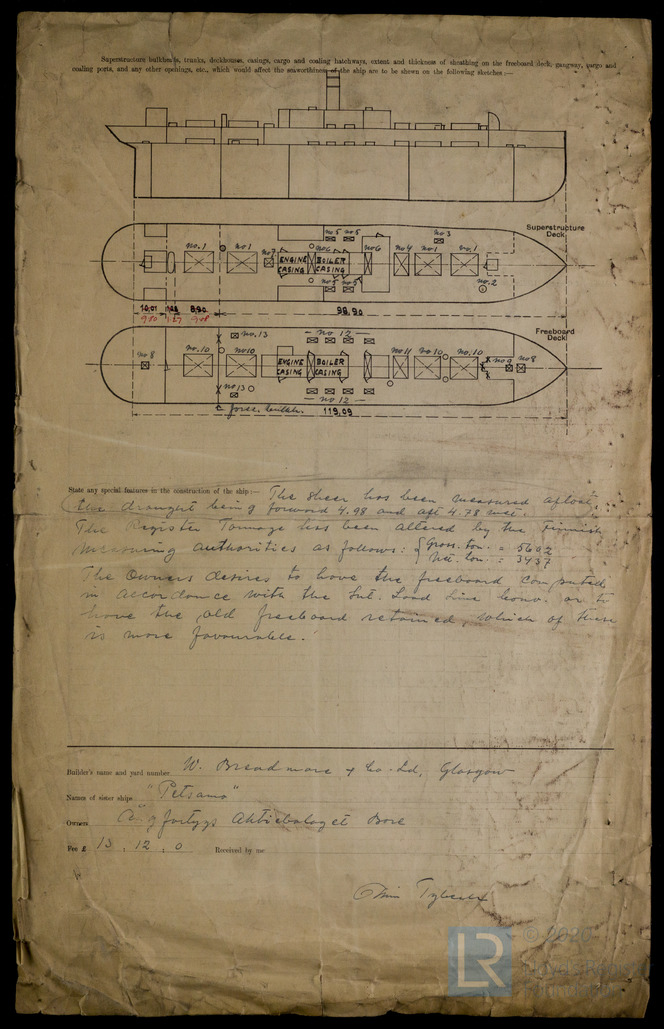 Superstructure bulkheads, trunks, deckhouses, casings, cargo and coaling hatchways, extent and thickness of sheathing on the freeboard deck, gangway, cargo and
coaling ports, and any other openings, etc., which would affect the seaworthiness of the ship are to be shewn on the following sketches:—
Superstructure
Deck
no.5 no5 no3
no.1 no1 no7 no6 no6 no4 no1 no.1
ENGINE CASING BOILER CASING
no5 no5 no.2
10,01 8,90 98,90
Freeboard
Deck
no.13 no 12
no 8 no.10 no10 no11 no10 no.10 no9 no8
ENGINE CASING BOILER CASING
no13 no 12
119,09
State any special features in the construction of the ship:— The sheer has been measured afloat,
the draught being forward 4.98 and aft 4.78
The Register Tonnage has been altered by the Finnish
measuring authorities as follows: Gross. ton. = 5602
Net. ton. = 3437
The Owners desires to have the freeboard computed
in accordance with the Int. Load Line Conv. or to
have the old freeboard retained, which of these
is more favourable.
Builder's name and yard number W. Breadmore & Co. Ltd, Glasgow
Names of sister ships "Petsamo"
Owners Ångfartygs Aktiebolaget Bore
Fee £ 13 . 12 . 0 Received by me
LR © 2020
Lloyd's Register
Foundation